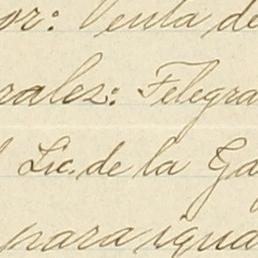 or: Venta de
rales: Telegra
l Lic. de la Ga
para igua